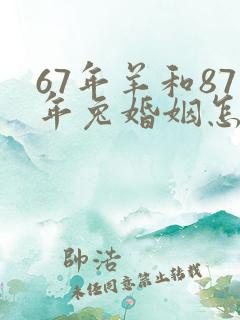 67年羊和87
年兔婚姻怎
帥浩
未经同意禁止转载